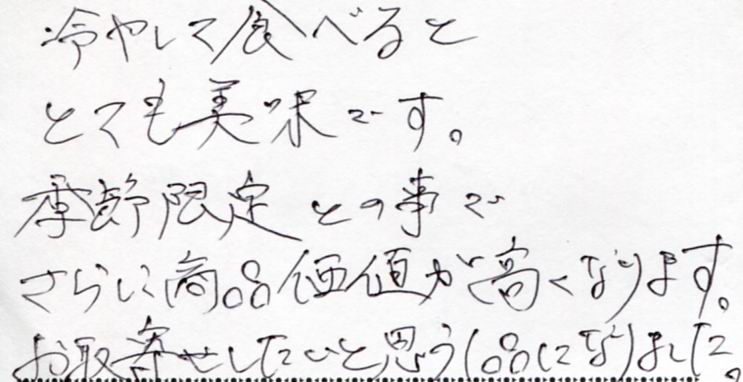 冷やして食べると
とても美味です。
季節限定との事で
さらに商品価値が高くなります。
お取寄せしたいと思う1品になりました。